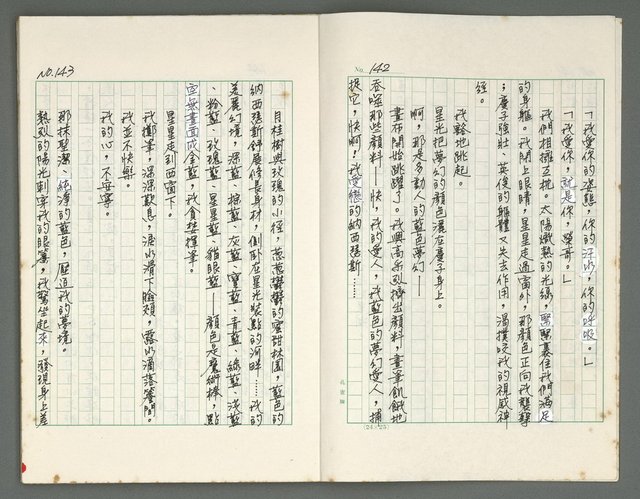 No. 142
「我愛你的姿態，你的汗水，你的呼吸。」
「我愛你，就是你，榮哥。」
我們相擁互抚。太陽熾熱的光緣，緊緊裹住我們滿足
的身軀。我閉上眼睛，星星走過窗外，那顏色正向我襲擊
；慶子強壯、英俊的軀體又失去作用，渴撲咬我的視感神
經。
我輕地跳起。
星光把夢幻的顏色灑在慶子身上。
啊，那是多動人的藍色夢幻——
畫布開始跳躍了。我興高采烈擠出顏料，畫筆飢餓地
吞噬那些顏料——快，我的愛人，我藍色的夢幻愛人，捕
捉它，快啊！我愛戀的納西瑟斯……
孔雀牌
(24×25)
No. 143
月桂樹與玫瑰的小徑，蔥蔥鬱鬱的蜜甜林園，藍色的
納西瑟斯舒展修長身材，側卧在星光裝點的河畔……我的
美麗幻境，深藍、棕藍、灰藍、寶藍、青藍、綠藍、淺藍
、粉藍、玫瑰藍、星星藍、貓眼藍——顏色是魔術棒，點
空無畫面成金藍，我貪婪揮筆。
星星走到西窗下。
我擲筆，深深歎息，淚水滑下臉頰，露水滴落簷間。
我並不快樂。
我的心，不安寧。
那抹聖潔、純淨的藍色，壓迫我的夢境。
熱烈的陽光刺穿我的眼簾，我驚坐起來，發現身上蓋